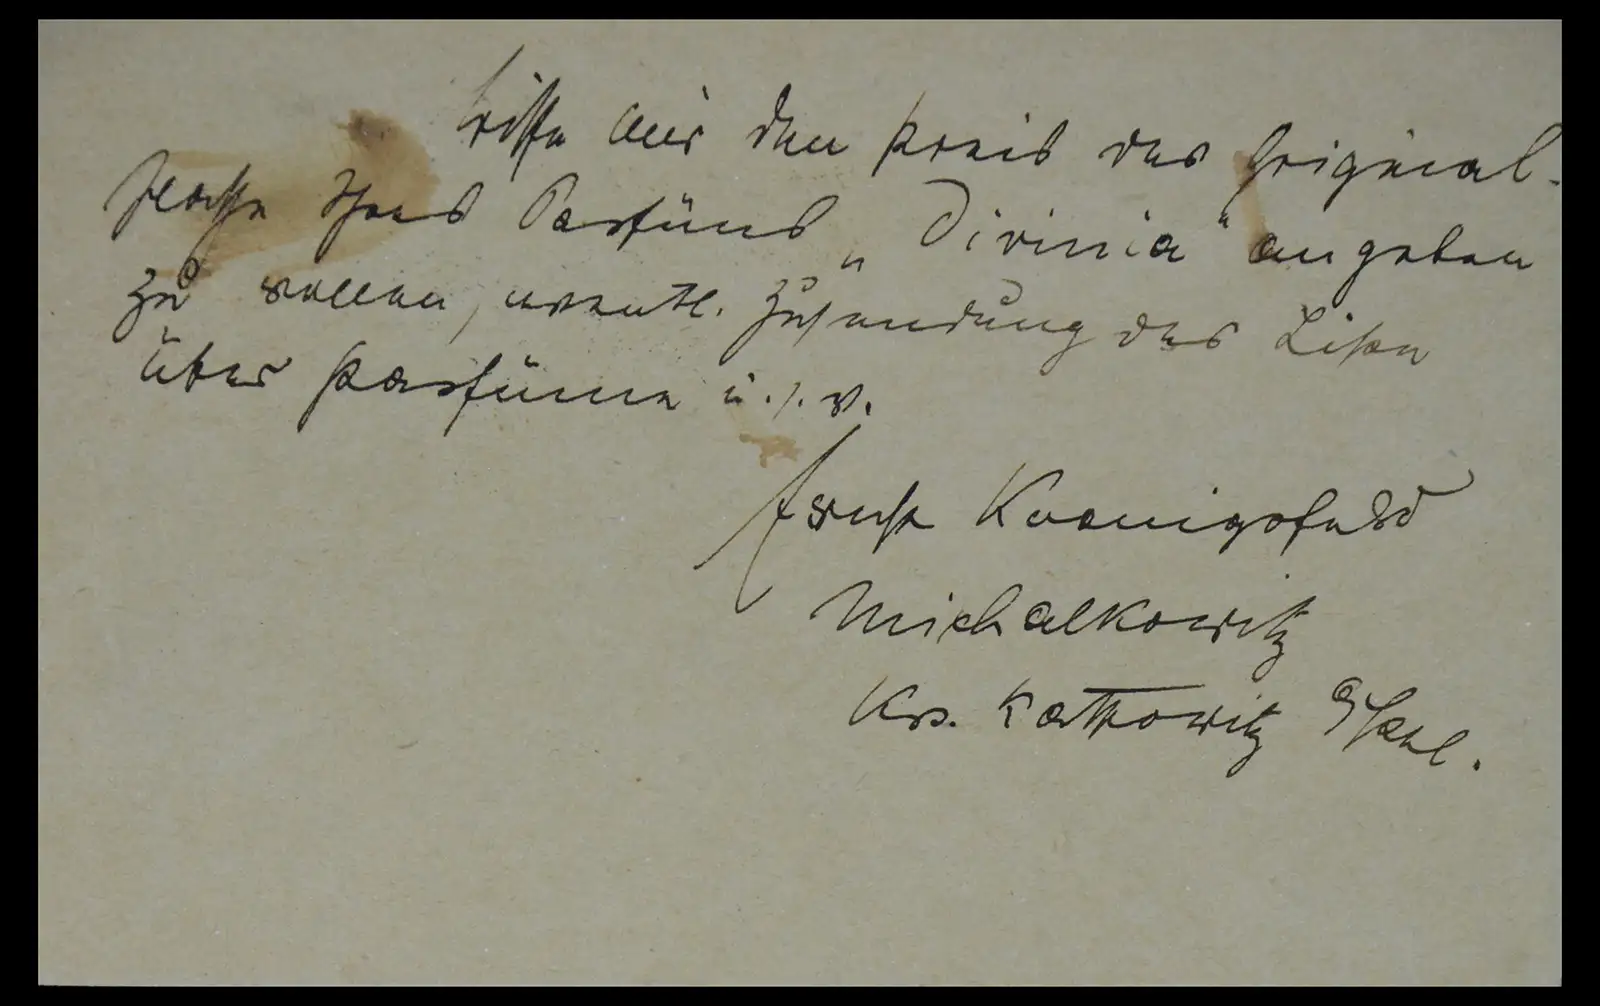 Bitte mir den Preis der Original-
flasche Ihres Parfüms
„Divinia“ angeben
zu wollen, eventl. Zusendung der Liste
über Parfüme u.s.w.
Ernst Koenigsfeld
Michalkowitz
Krs. Kattowitz O/Schl.